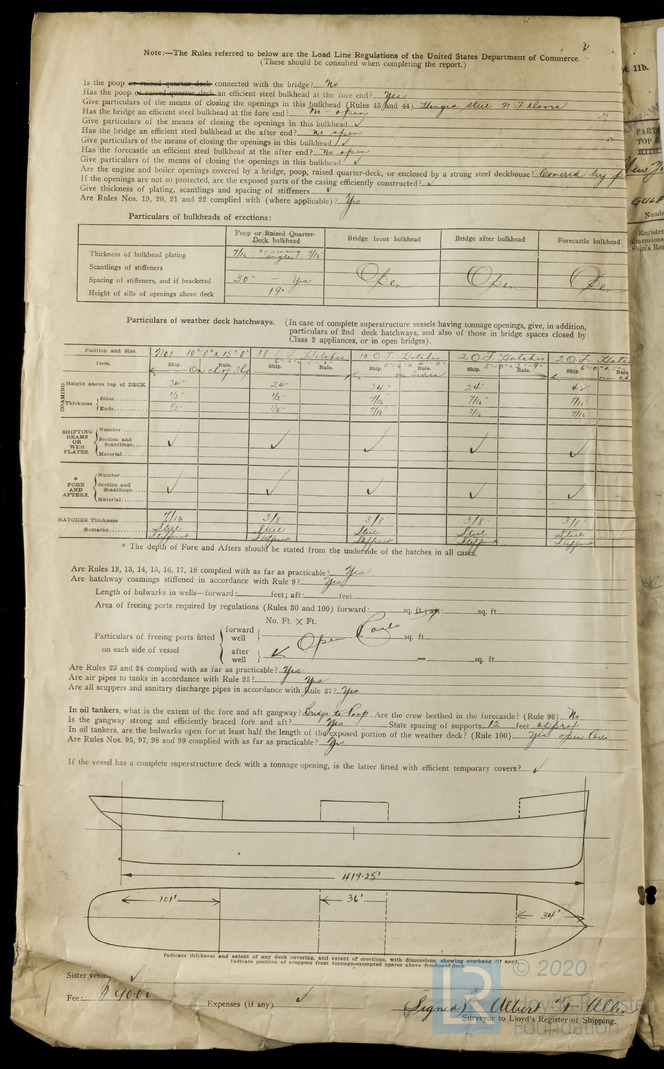 Note:—The Rules referred to below are the Load Line Regulations of the United States Department of Commerce.
(These should be consulted when completing the report.)
Is the poop or raised quarter deck connected with the bridge? No
Has the poop or raised quarter deck an efficient steel bulkhead at the fore end? Yes
Give particulars of the means of closing the openings in this bulkhead (Rules 43 and 44) Hinged steel W T Doors
Has the bridge an efficient steel bulkhead at the fore end? No open
Give particulars of the means of closing the openings in this bulkhead ✓
Has the bridge an efficient steel bulkhead at the after end? no open
Give particulars of the means of closing the openings in this bulkhead ✓
Has the forecastle an efficient steel bulkhead at the after end? No open
Give particulars of the means of closing the openings in this bulkhead ✓
Are the engine and boiler openings covered by a bridge, poop, raised quarter-deck, or enclosed by a strong steel deckhouse? Covered by p
If the openings are not so protected, are the exposed parts of the casing efficiently constructed? ✓
Give thickness of plating, scantlings and spacing of stiffeners ✓
Are Rules Nos. 19, 20, 21 and 22 complied with (where applicable)? Yes
Particulars of bulkheads of erections:
Poop or Raised Quarter-Deck bulkhead
Bridge front bulkhead
Bridge after bulkhead
Forecastle bulkhead
Thickness of bulkhead plating 7/16"
Scantlings of stiffeners
Spacing of stiffeners, and if bracketed 30" - Yes
Height of sills of openings above deck 19"
Open Open Open
Particulars of weather deck hatchways. (In case of complete superstructure vessels having tonnage openings, give, in addition,
particulars of 2nd deck hatchways, and also of those in bridge spaces closed by
Class 2 appliances, or in open bridges).
Position and Size. 10'0" x 15'0" 18 O.T. Hatches 10 O.T. Hatches 2 O.T. Hatches 2 O.T. Hatc
Item. Ship. Rule. Ship. Rule. Ship. Rule. Ship. Rule. Ship. Rule.
COAMING
Height above top of DECK 24" 24" 24" 24"
Thickness
Sides 1/2" 1/2" 7/16 7/16 7/16
Ends 1/2" 1/2" 7/16 7/16 7/16
SHIFTING BEAMS OR WEB PLATES.
Number
Section and Scantlings ✓ ✓ ✓ ✓ ✓
Material
* FORE AND AFTERS.
Number
Section and Scantlings ✓ ✓ ✓ ✓ ✓
Material
HATCHES Thickness 7/16 3/8 3/8 3/8 3/8
Remarks Steel Steel Steel Steel Steel
* The depth of Fore and Afters should be stated from the underside of the hatches in all cases.
Are Rules 12, 13, 14, 15, 16, 17, 18 complied with as far as practicable? Yes
Are hatchway coamings stiffened in accordance with Rule 9? Yes
Length of bulwarks in wells—forward: feet; aft: feet.
Area of freeing ports required by regulations (Rules 30 and 100) forward: sq. ft.; aft: sq. ft.
No. Ft. X Ft.
Particulars of freeing ports fitted
on each side of vessel
forward well sq. ft.
Open Rails
after well — sq. ft.
Are Rules 23 and 24 complied with as far as practicable? Yes
Are air pipes to tanks in accordance with Rule 25? Yes
Are all scuppers and sanitary discharge pipes in accordance with Rule 27? Yes
In oil tankers, what is the extent of the fore and aft gangway? Bridge to Poop Are the crew berthed in the forecastle? (Rule 96) No
Is the gangway strong and efficiently braced fore and aft? Yes State spacing of supports 12 feet
In oil tankers, are the bulwarks open for at least half the length of the exposed portion of the weather deck? (Rule 100) Yes open
Are Rules Nos. 95, 97, 98 and 99 complied with as far as practicable? Yes
If the vessel has a complete superstructure deck with a tonnage opening, is the latter fitted with efficient temporary covers? ✓
419.25'
101' 36' 34'
Indicate thickness and extent of any deck covering, and extent of erections, with dimensions, showing overhang (if any).
Indicate position of scuppers from tonnage-exempted spaces above freeboard deck.
Sister vessel ✓
Fee: $ 40.00 Expenses (if any) ✓
(Signed) Albert
Surveyor to Lloyd's Register of Shipping.
© 2020
Lloyd's Register
Foundation
LR
11b.
PART
TOP
WITH
New
GULF
Numb
Register
Ship's Res